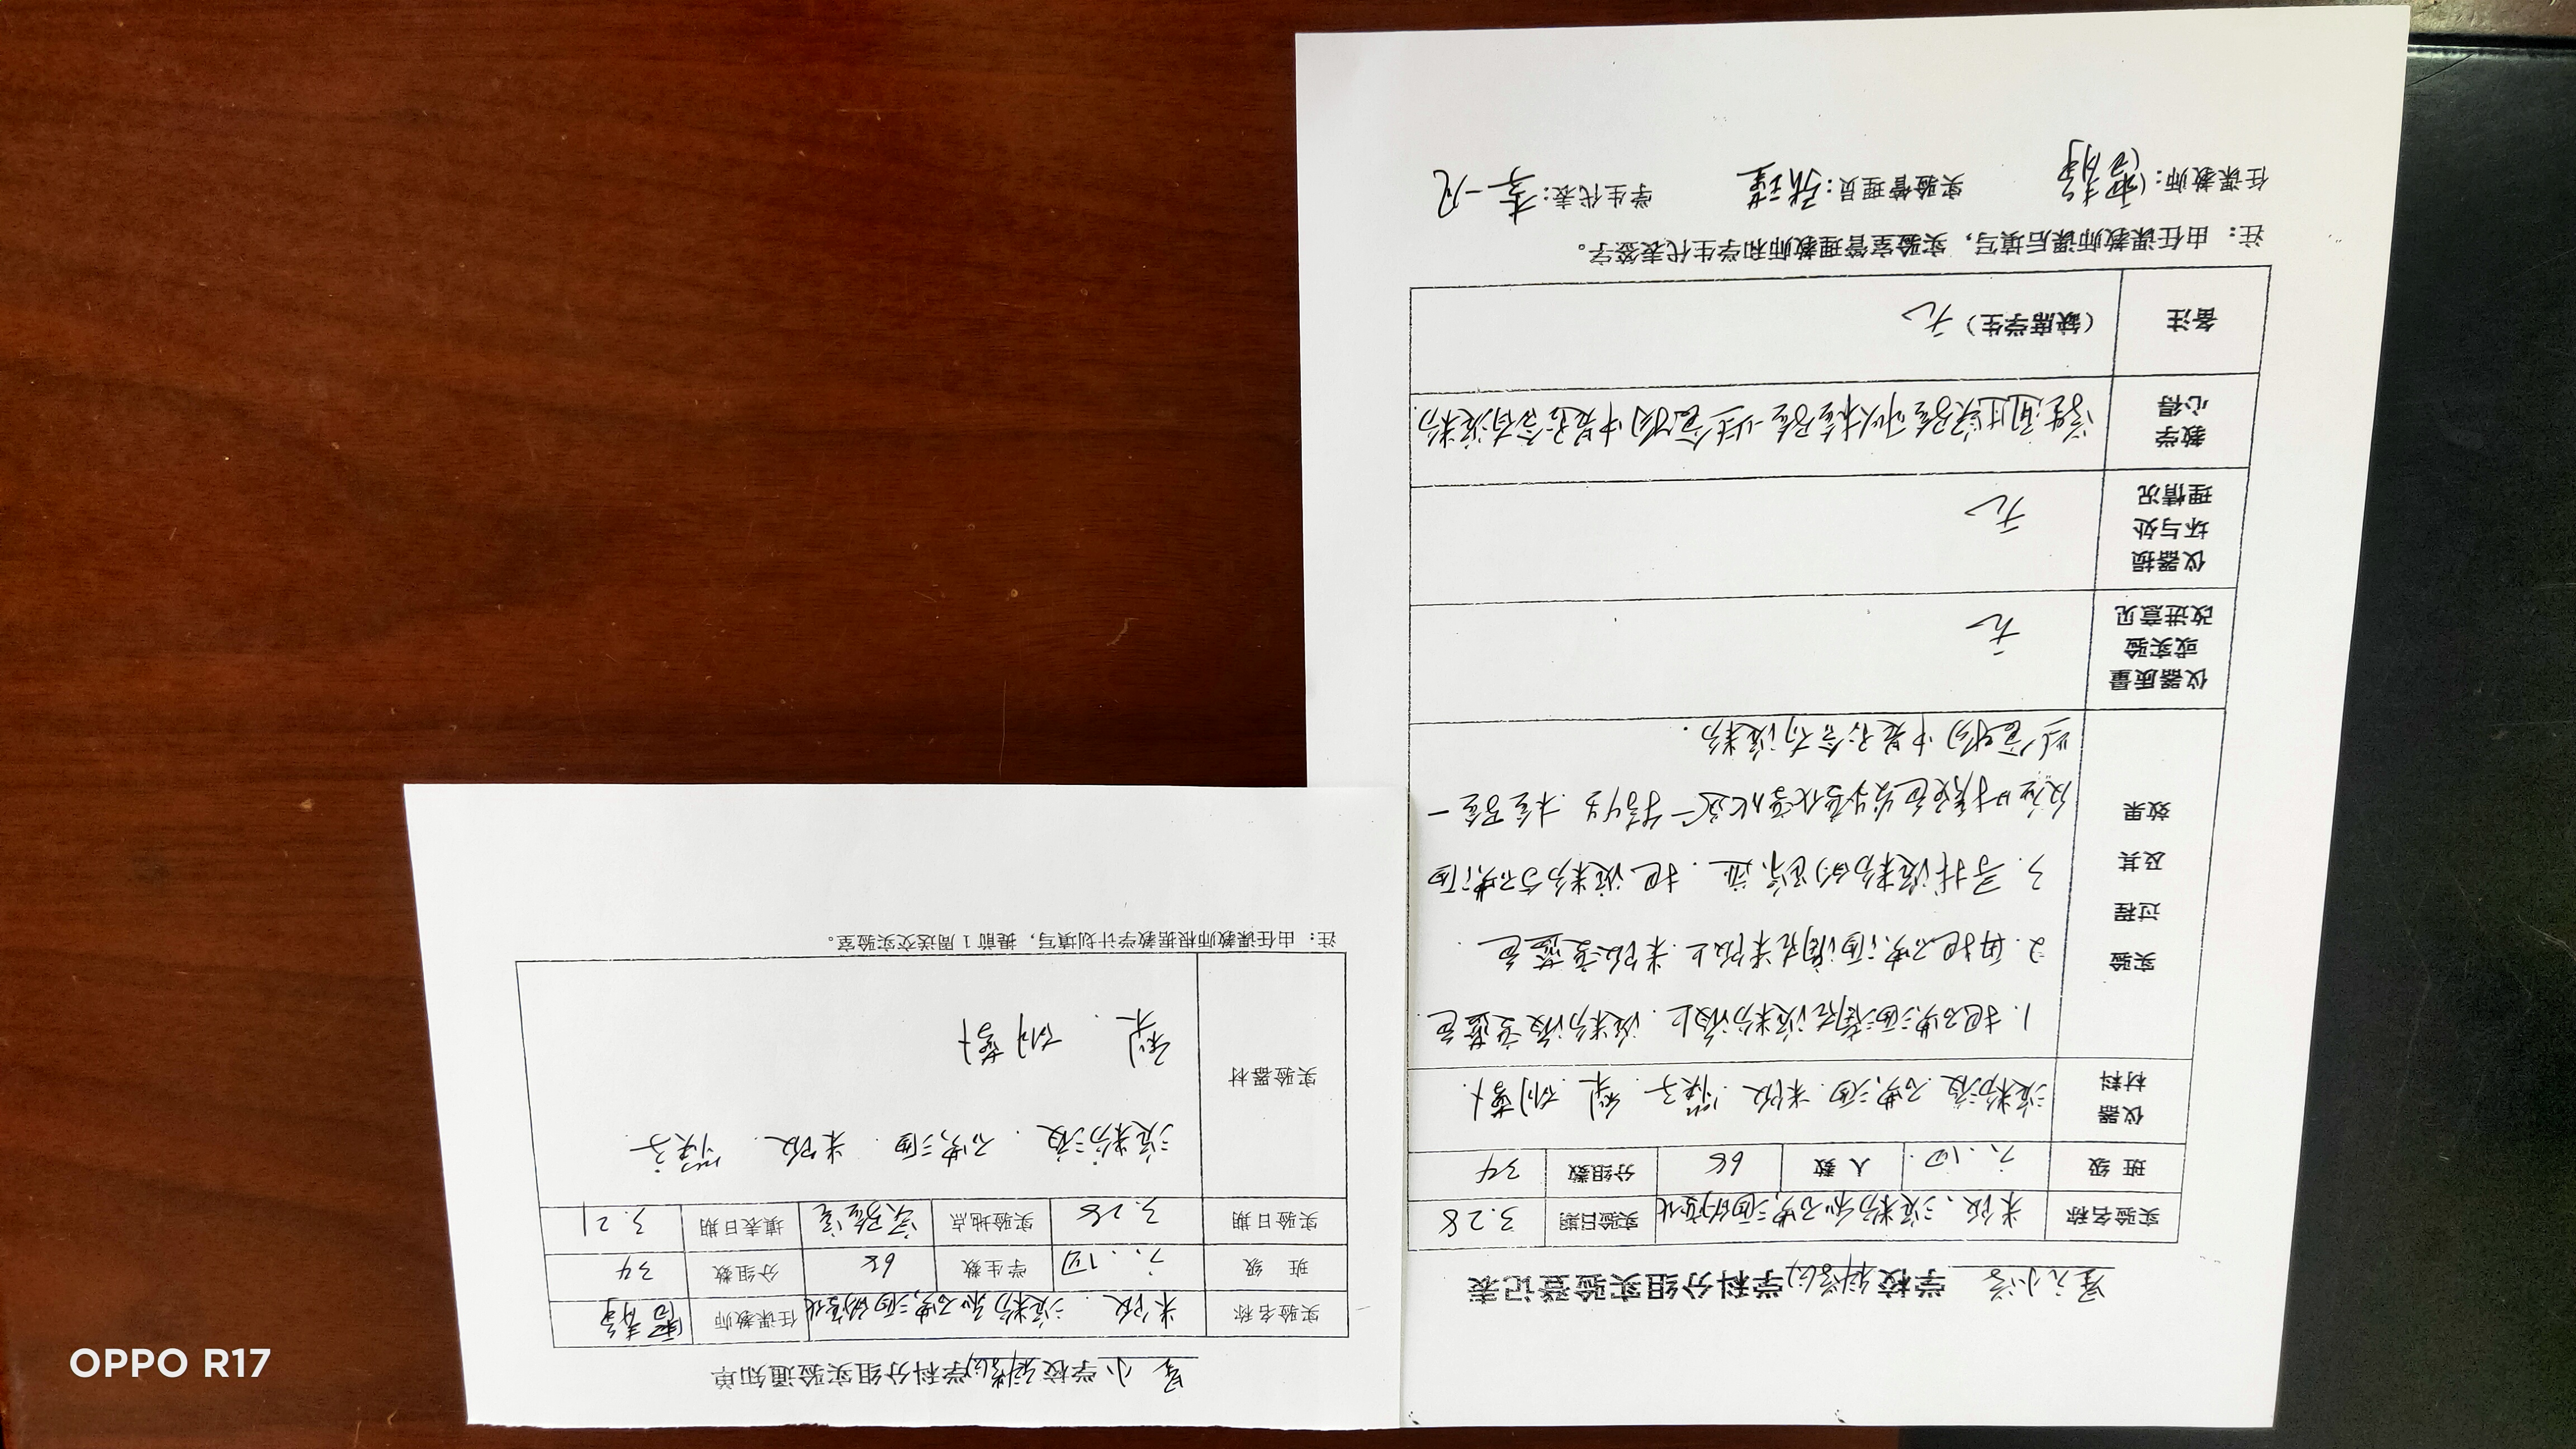 学校科学学科分组实验登记表
实验名称 米饭、淀粉和碘酒的变化 实验日期 3.28
班 级 人 数 68 分组数 34
仪器材料 淀粉液 碘酒 米饭 筷子 梨
实验过程及其效果
1. 把碘酒滴在淀粉液上. 淀粉液变蓝色.
2. 再把碘酒滴在米饭上. 米饭变蓝色.
3. 寻找淀粉的踪迹. 把淀粉与碘酒
反应时颜色发生变化这一特征 检验一
些食物中是否含有淀粉.
仪器质量或实验改进意见 无
仪器损坏与处理情况 无
教学心得 学生通过实验可以检验一些食物中是否含有淀粉
备注 (缺席学生) 无
注: 由任课教师课后填写, 实验室管理教师和学生代表签字。
任课教师: 实验管理员: 学生代表: 李一凡
小 学校科学学科分组实验通知单
实验名称 米饭. 淀粉和碘酒的变化 任课教师
班 级 学生数 68 分组数 34
实验日期 3.28 实验地点 实验室 填表日期 3.21
实验器材 淀粉液. 碘酒. 米饭. 筷子.
梨.
注: 由任课教师根据教学计划填写, 提前 1 周送交实验室。
OPPO R17